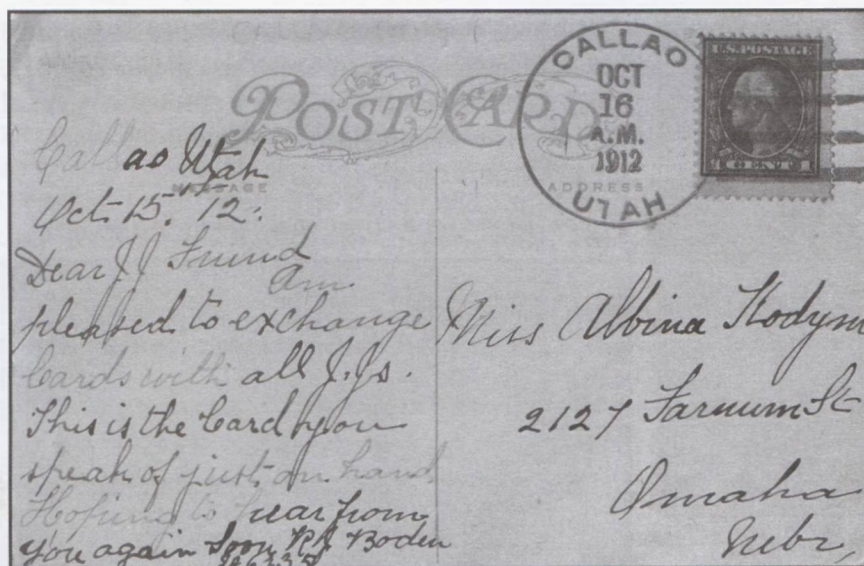 POST CARD
CALLAO
OCT
16
A.M.
1912
UTAH
U.S. POSTAGE
1 CENT 1
MESSAGE
ADDRESS
Callao Utah
Oct. 15. '12.
Dear J J Friend
Am
pleased to exchange
Cards with all J.Js.
This is the Card you
speak of just on hand
Hoping to hear from
you again Soon R J Boden
Miss Albina Kodym
2127 Farnum St
Omaha
Nebr,